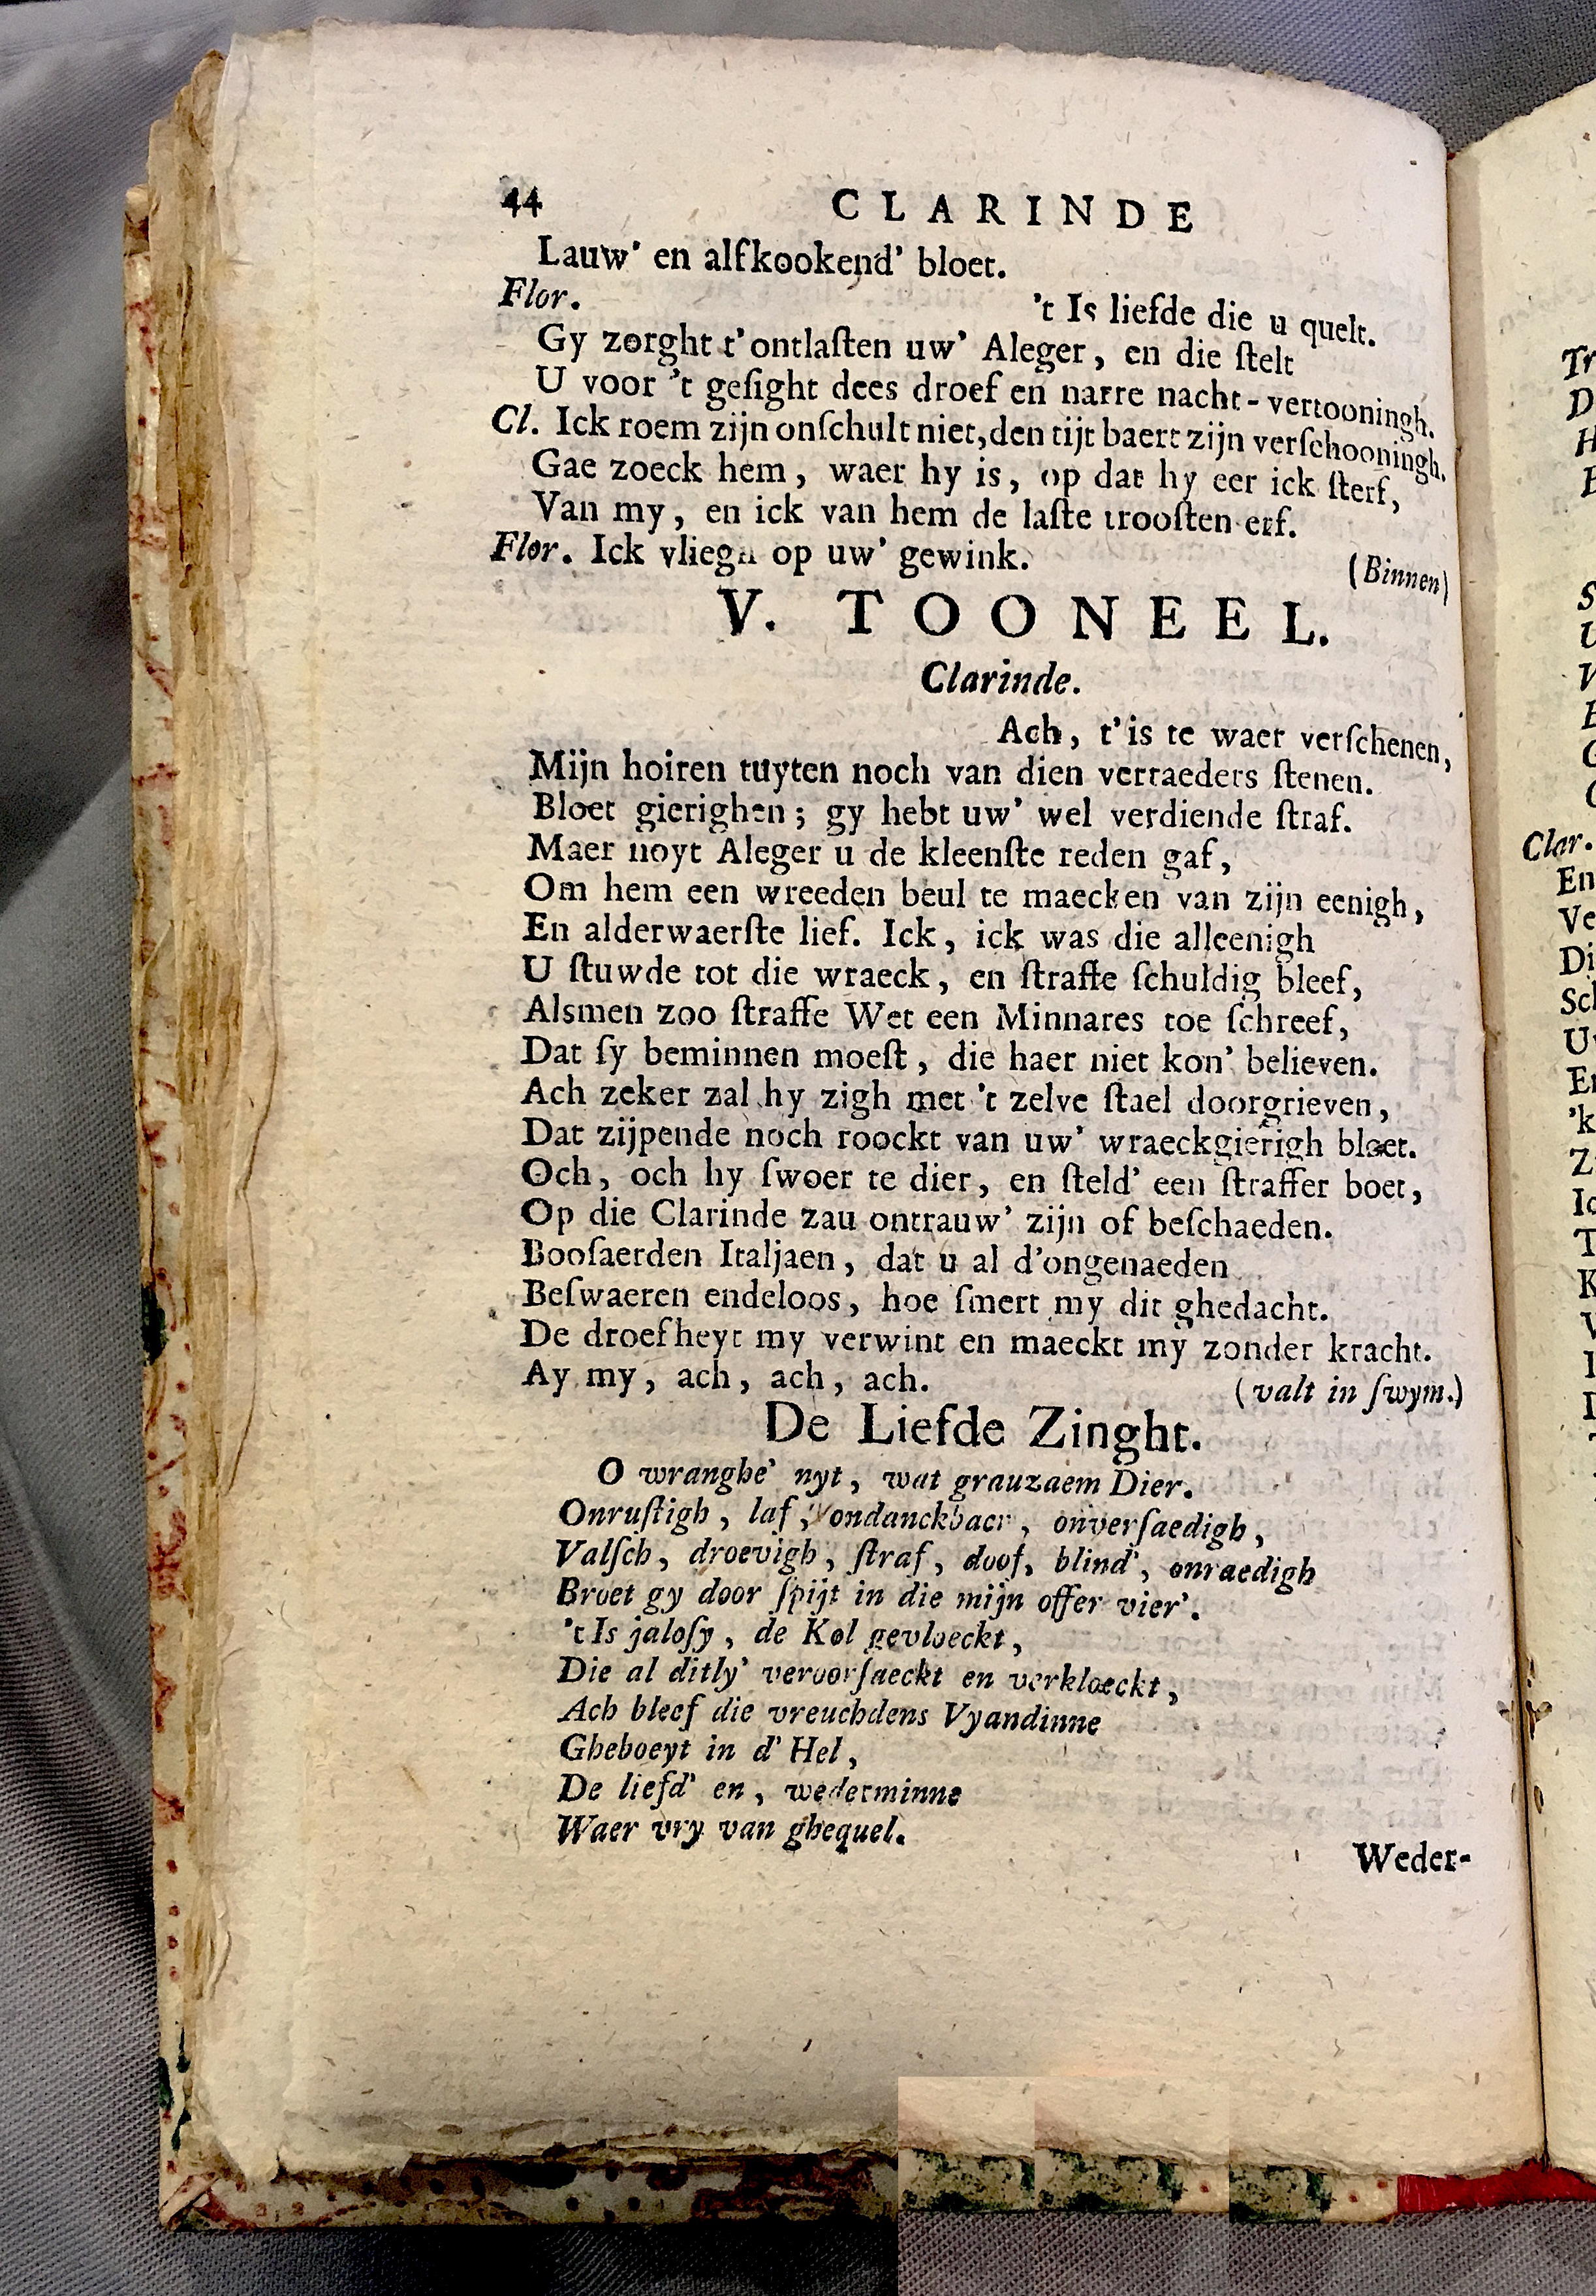 44 CLARINDE
Lauw' en alſkookend' bloet.
Flor. 't Is liefde die u quelt.
Gy zorght t'ontlaſten uw' Aleger, en die ſtelt
U voor 't geſight dees droef en narre nacht-vertooningh.
Cl. Ick roem zijn onſchult niet, den tijt baert zijn verſchooningh.
Gae zoeck hem, waer hy is, op dat hy eer ick ſterf,
Van my, en ick van hem de laſte trooſten erf.
Flor. Ick vliegh op uw' gewink. (Binnen)
V. TOONEEL.
Clarinde.
Ach, t'is te waer verſchenen,
Mijn hoiren tuyten noch van dien verraeders ſtenen.
Bloet gierighen; gy hebt uw' wel verdiende ſtraf.
Maer noyt Aleger u de kleenſte reden gaf,
Om hem een wreeden beul te maecken van zijn eenigh,
En alderwaerſte lief. Ick, ick was die alleenigh
U ſtuwde tot die wraeck, en ſtraffe ſchuldig bleef,
Alsmen zoo ſtraffe Wet een Minnares toe ſchreef,
Dat ſy beminnen moeſt, die haer niet kon' believen.
Ach zeker zal hy zigh met 't zelve ſtael doorgrieven,
Dat zijpende noch roockt van uw' wraeckgierigh bloet.
Och, och hy ſwoer te dier, en ſteld' een ſtraffer boet,
Op die Clarinde zau ontrauw' zijn of beſchaeden.
Booſaerden Italjaen, dat u al d'ongenaeden
Beſwaeren endeloos, hoe ſmert my dit ghedacht.
De droefheyt my verwint en maeckt my zonder kracht.
Ay my, ach, ach, ach. (valt in ſwym.)
De Liefde Zinght.
O wranghe' nyt, wat grauzaem Dier.
Onruſtigh, laf, ondanckbaer, onverſaedigh,
Valſch, droevigh, ſtraf, doof, blind', onraedigh
Broet gy door ſpijt in die mijn offer vier'.
't Is jaloſy, de Kol gevloeckt,
Die al ditly' veroorſaeckt en verkloeckt,
Ach bleef die vreuchdens Vyandinne
Gheboeyt in d' Hel,
De liefd' en, wederminne
Waer vry van ghequel.
Weder-
Tr
D
H
S
U
Clar.
En
Ve
Di
Sch
Uv
En
'k